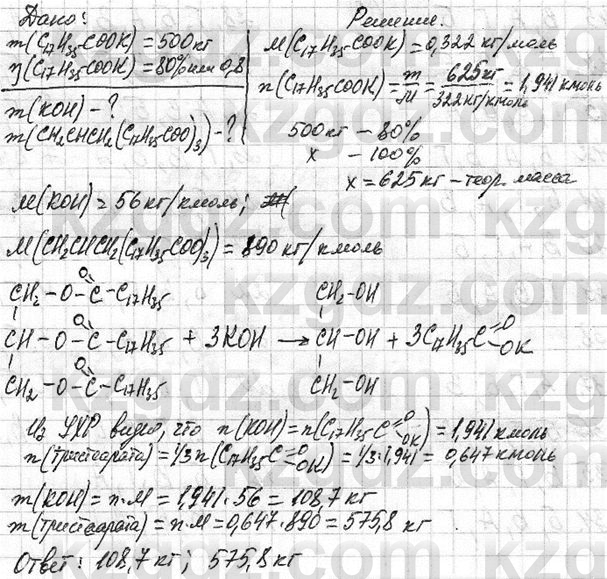 Дано:
m(C17H35COOK) = 500 кг
η(C17H35COOK) = 80% или 0,8
m(KOH) - ?
m(CH2CHCH2(C17H35COO)3) - ?
Решение.
M(C17H35COOK) = 0,322 кг/моль
n(C17H35COOK) = m/M = 625кг/322кг/кмоль = 1,941 кмоль
500 кг – 80%
x – 100%
x = 625 кг – теор. масса
M(KOH) = 56 кг/кмоль;
M(CH2CHCH2(C17H35COO)3) = 890 кг/кмоль
CH2 - O - C(=O) - C17H35 CH2-OH
CH - O - C(=O) - C17H35 + 3KOH → CH-OH + 3C17H35C(=O)-OK
CH2 - O - C(=O) - C17H35 CH2-OH
Из УХР видно, что n(KOH) = n(C17H35C(=O)-OK) = 1,941 кмоль
n(тристеарата) = 1/3 n(C17H35C(=O)-OK) = 1/3·1,941 = 0,647 кмоль
m(KOH) = n·M = 1,941·56 = 108,7 кг
m(тристеарата) = n·M = 0,647·890 = 575,8 кг.
Ответ: 108,7 кг; 575,8 кг
kzgdz.com